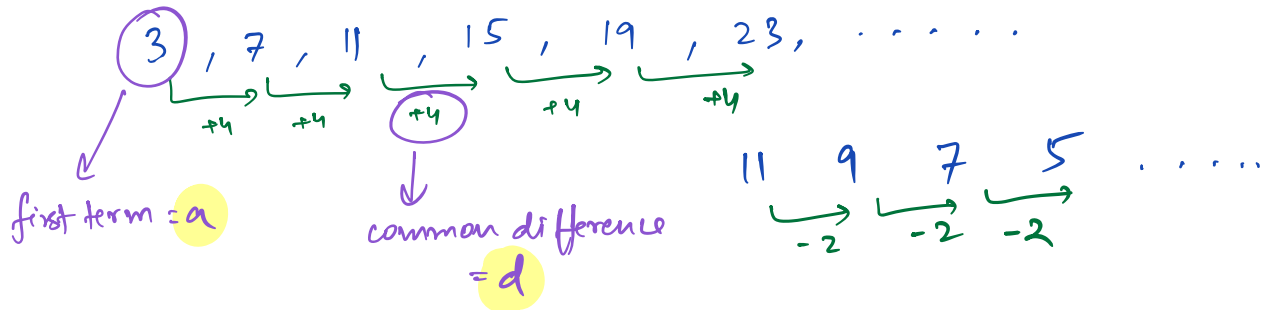 3, 7, 11, 15, 19, 23, .....
+4 +4 +4 +4 +4
first term = a
common difference
= d
11 9 7 5 .....
-2 -2 -2